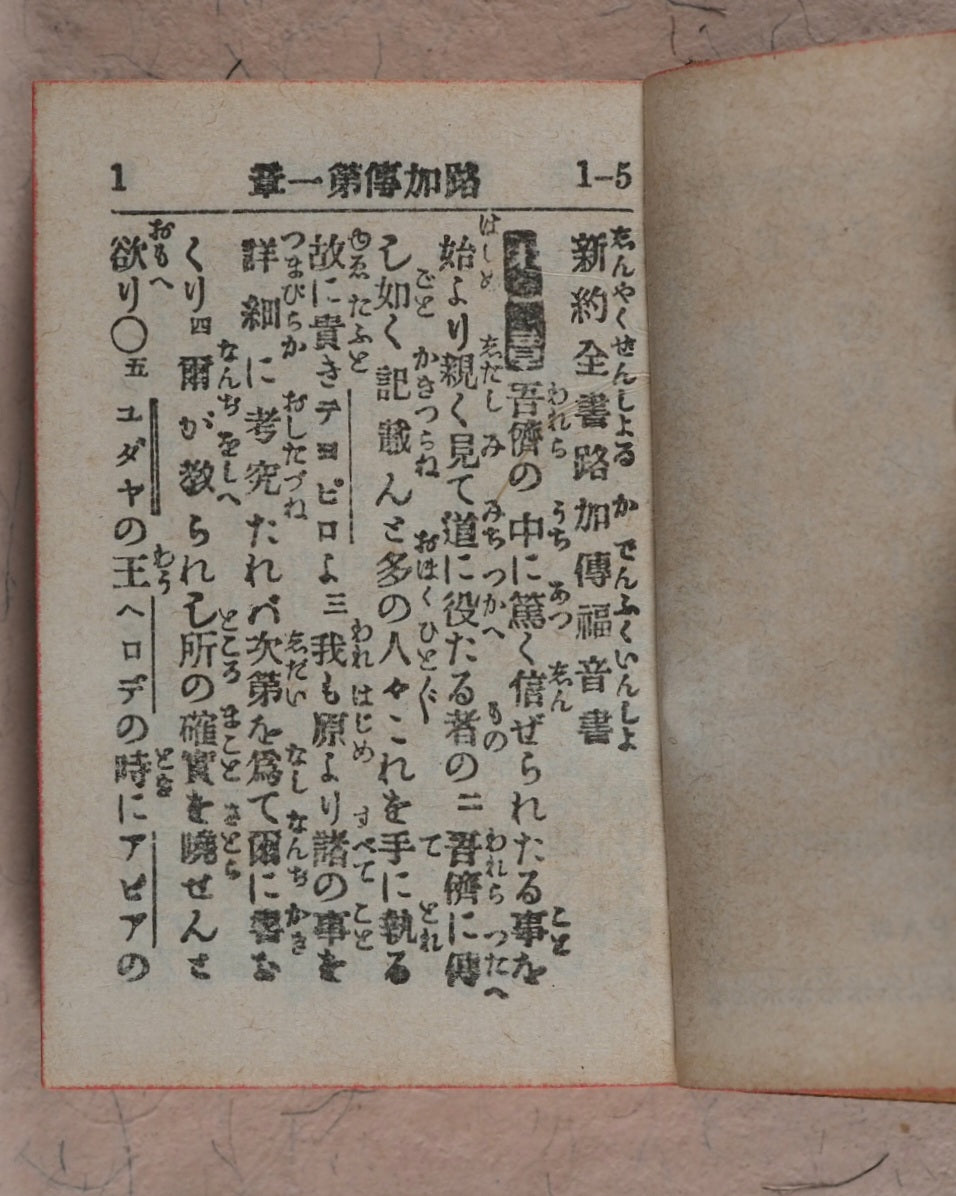 1-5 路加傳第一章 1
新約全書路加傳福音書
吾儕の中に篤く信ぜられたる事を
始より親く見て道に役たる者の二吾儕に傳
し如く記載んと多の人々これを手に執る
故に貴きテヨピロよ三我も原より諸の事を
詳細に考究たれバ次第を爲て爾に書お
くり四爾が教られし所の確實を曉せんと
欲り〇五ユダヤの王ヘロデの時にアビアの